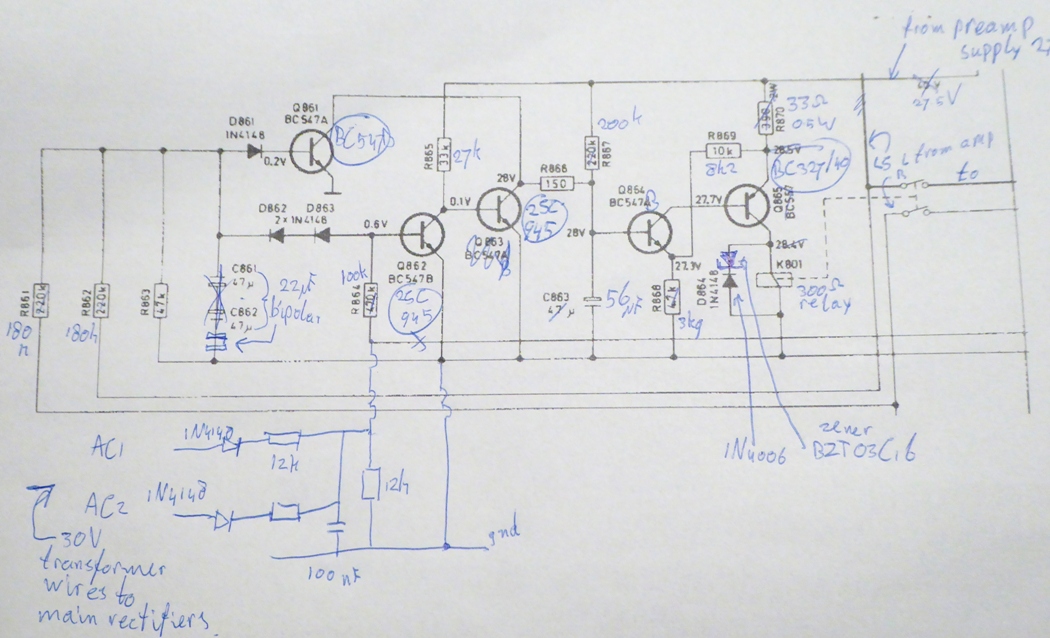 from preamp
supply 27
27.5V
Q861
BC547A
BC547B
D861
1N4148
0.2V
R865
33k
27k
200k
220k
R867
R869
10k
8k2
33Ω
0.5W
2W
R870
28.5V
BC327/40
L from amp
R
to
D862 D863
2x1N4148
0.6V
0.1V
28V
R866
150
Q863
BC547A
2SC
945
Q864
BC547A
B
28V
27.7V
Q865
BC557
28.4V
27.3V
Q862
BC547B
2SC
945
C861
47µ
C862
47µ
22µF
bipolar
100k
R864
470k
C863
47µ
56µF
R868
4.7k
3k9
D864
1N4148
K801
300Ω
relay
R861
220k
180k
R862
220k
180k
R863
47k
AC1
1N4148
12k
AC2
1N4148
12k
100nF
gnd
1N4006
zener
BZT03C16
30V
transformer
wires to
main rectifiers